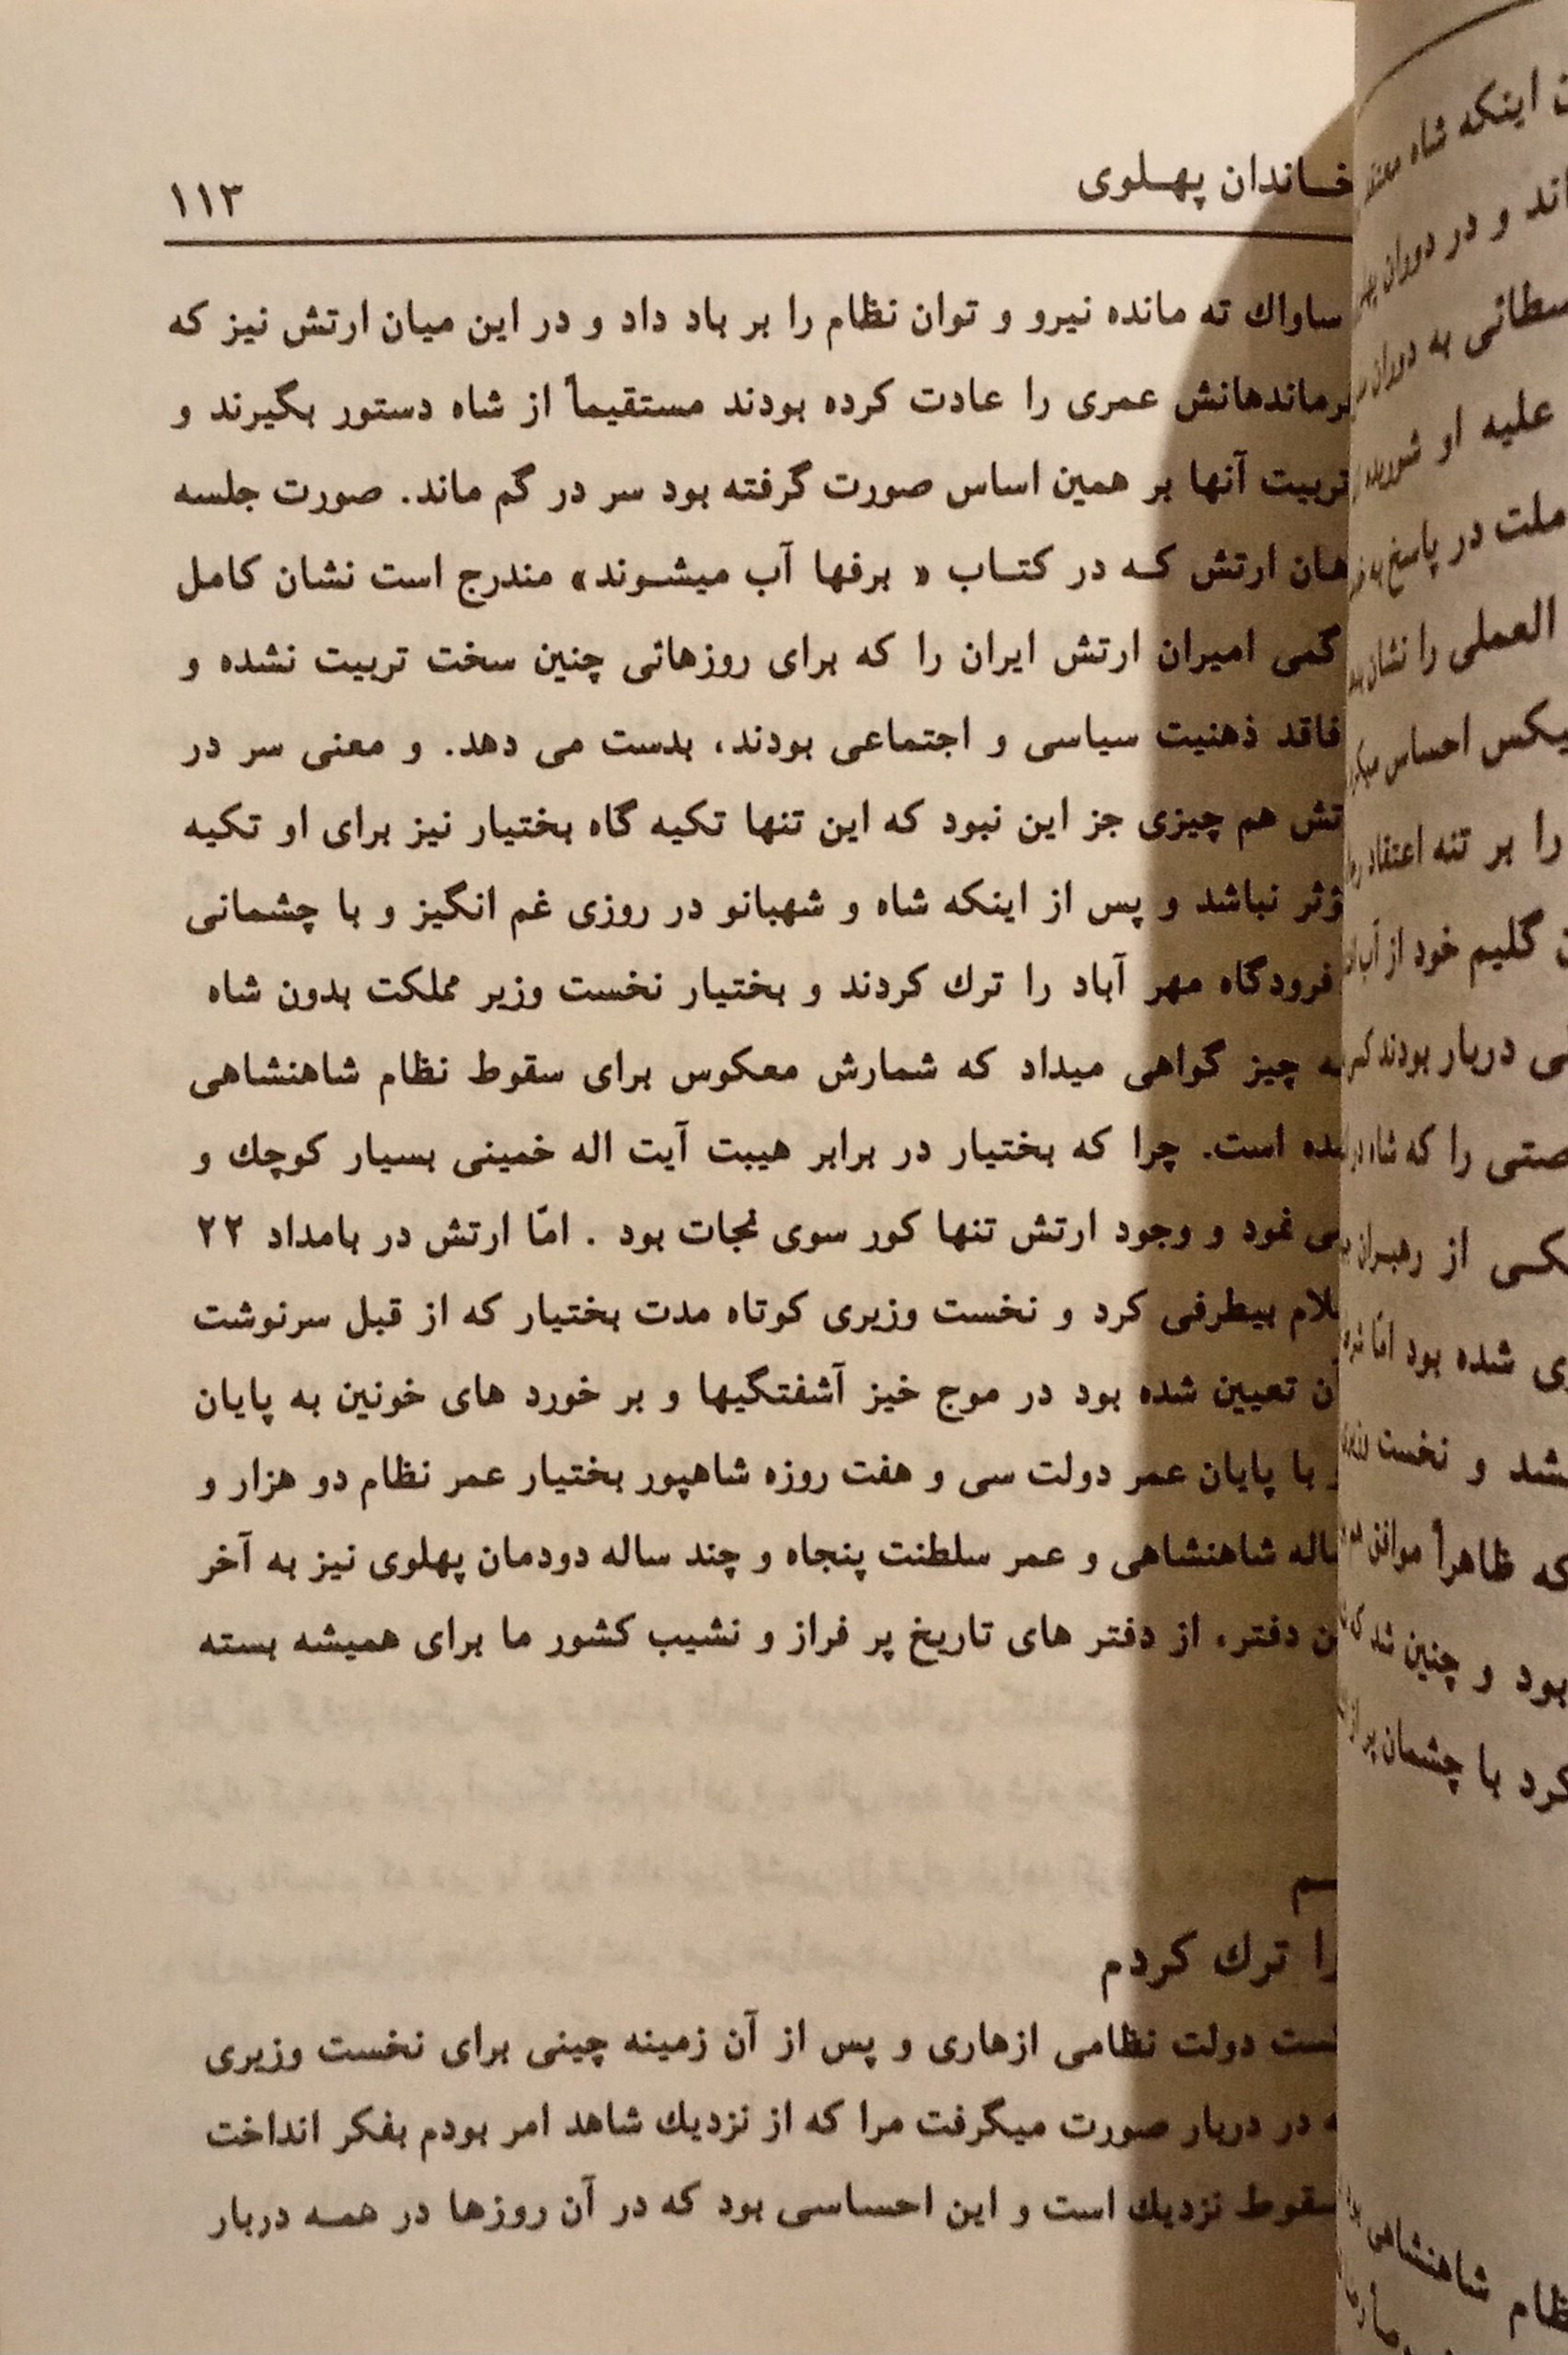 خاندان پهلوی
۱۱۳
ساواك ته مانده نیرو و توان نظام را بر باد داد و در این میان ارتش نیز که
عمری را عادت کرده بودند مستقیماً از شاه دستور بگیرند و
تربیت آنها بر همین اساس صورت گرفته بود سر در گم ماند. صورت جلسه
ارتش که در کتاب « برفها آب میشوند» مندرج است نشان کامل
گمی امیران ارتش ایران را که برای روزهائی چنین سخت تربیت نشده و
فاقد ذهنیت سیاسی و اجتماعی بودند، بدست می دهد. و معنی سر در
هم چیزی جز این نبود که این تنها تکیه گاه بختیار نیز برای او تکیه
نباشد و پس از اینکه شاه و شهبانو در روزی غم انگیز و با چشمانی
فرودگاه مهر آباد را ترك کردند و بختیار نخست وزیر مملکت بدون شاه
چیز گواهی میداد که شمارش معکوس برای سقوط نظام شاهنشاهی
است. چرا که بختیار در برابر هیبت آیت اله خمینی بسیار کوچك و
نمود و وجود ارتش تنها کور سوی نجات بود . امّا ارتش در بامداد ۲۲
بیطرفی کرد و نخست وزیری کوتاه مدت بختیار که از قبل سرنوشت
تعیین شده بود در موج خیز آشفتگیها و بر خورد های خونین به پایان
با پایان عمر دولت سی و هفت روزه شاهپور بختیار عمر نظام دو هزار و
شاهنشاهی و عمر سلطنت پنجاه و چند ساله دودمان پهلوی نیز به آخر
دفتر، از دفتر های تاریخ پر فراز و نشیب کشور ما برای همیشه بسته
را ترك کردم
دولت نظامی ازهاری و پس از آن زمینه چینی برای نخست وزیری
در دربار صورت میگرفت مرا که از نزدیك شاهد امر بودم بفکر انداخت
سقوط نزدیك است و این احساسی بود که در آن روزها در همه دربار
اینکه شاه
و در دوران
به دوران
علیه او
ملت در پاسخ به
العملی را نشان
احساس
را بر تنه اعتقاد
گلیم خود از آب
دربار بودند
را که شاه در
از رهبران
شده بود امّا
و نخست
که ظاهراً موافق
بود و چنین شد
کرد با چشمان پر از
شاهنشاهی